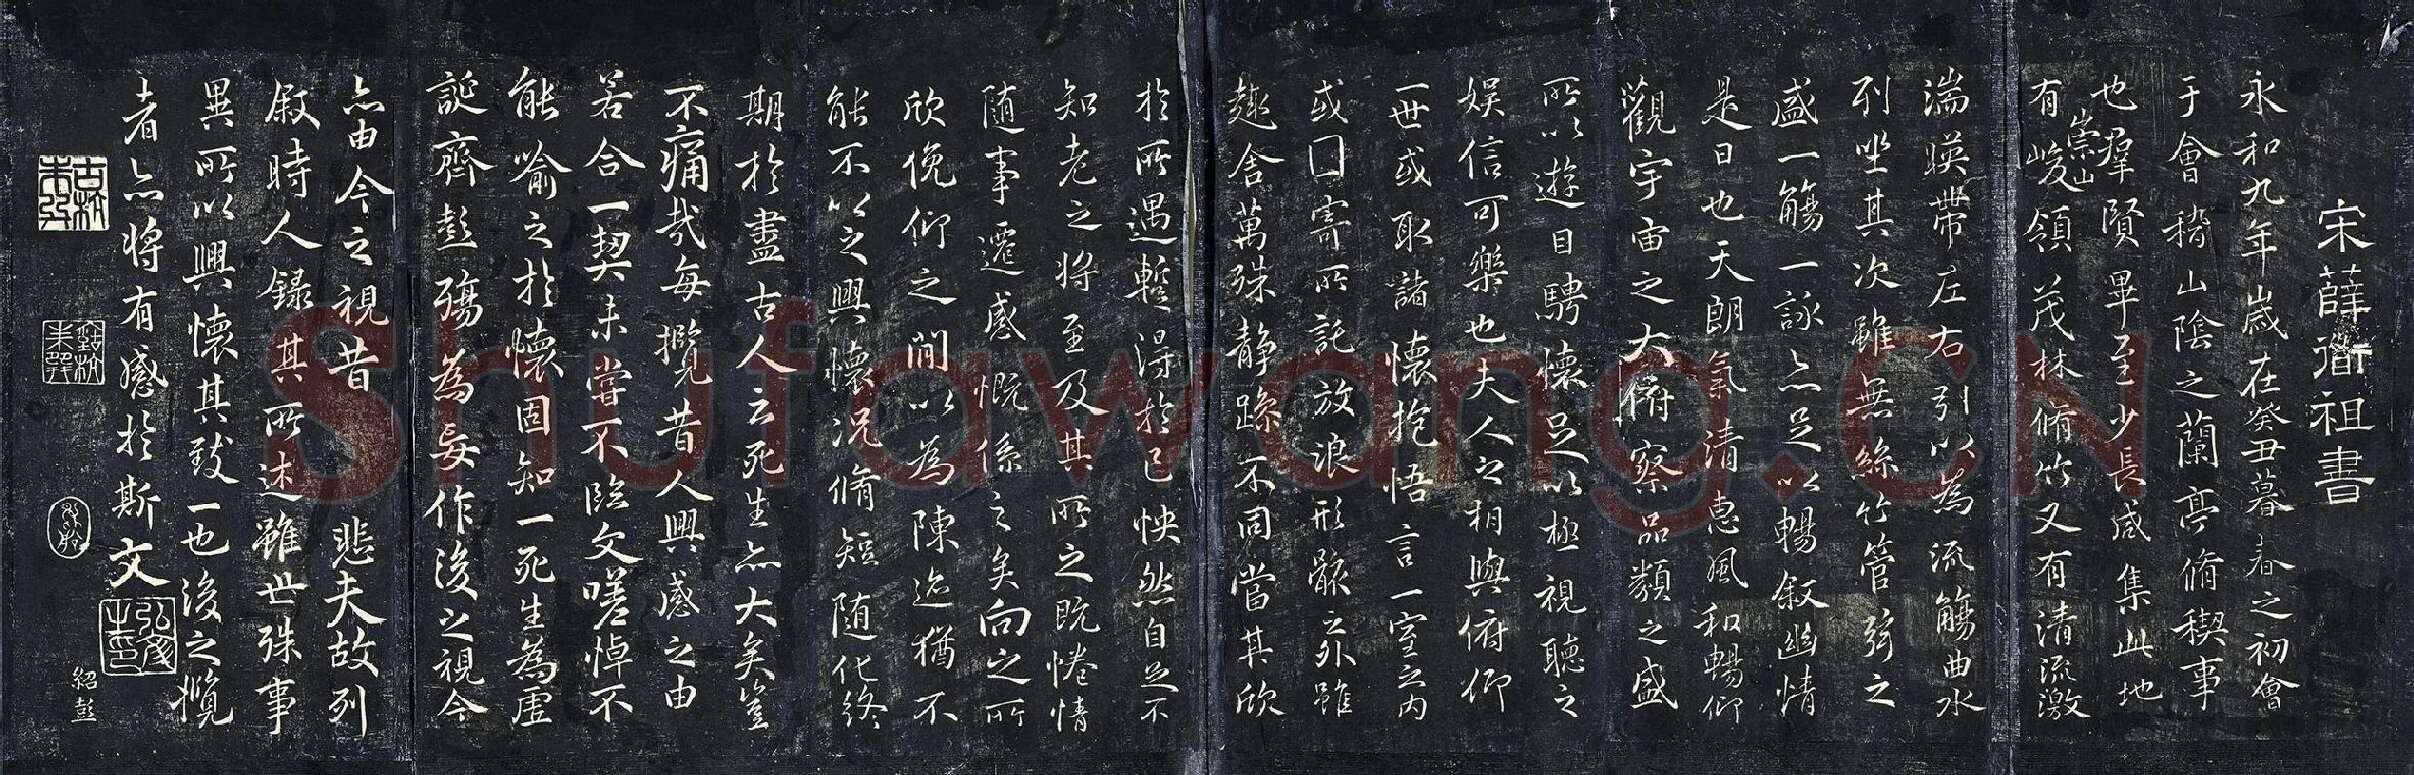 宋薛衜祖書
永和九年歲在癸丑暮春之初會
于會稽山陰之蘭亭脩稧事
也羣賢畢至少長咸集此地
有崇山峻領茂林脩竹又有清流激
湍暎帶左右引以為流觴曲水
列坐其次雖無絲竹管弦之
盛一觴一詠亦足以暢敘幽情
是日也天朗氣清惠風和暢仰
觀宇宙之大俯察品類之盛
所以遊目騁懷足以極視聽之
娛信可樂也夫人之相與俯仰
一世或取諸懷抱悟言一室之內
或寄所託放浪形骸之外雖
趣舍萬殊靜躁不同當其欣
於所遇蹔得於己怏然自足不
知老之將至及其所之既惓情
隨事遷感慨係之矣向之所
欣俛仰之閒以為陳迹猶不
能不以之興懷況脩短隨化終
期於盡古人云死生亦大矣豈
不痛哉每攬昔人興感之由
若合一契未嘗不臨文嗟悼不
能喻之於懷固知一死生為虛
誕齊彭殤為妄作後之視今
亦由今之視昔 悲夫故列
敘時人錄其所述雖世殊事
異所以興懷其致一也後之攬
者亦將有感於斯文
紹彭
shufawang.CN